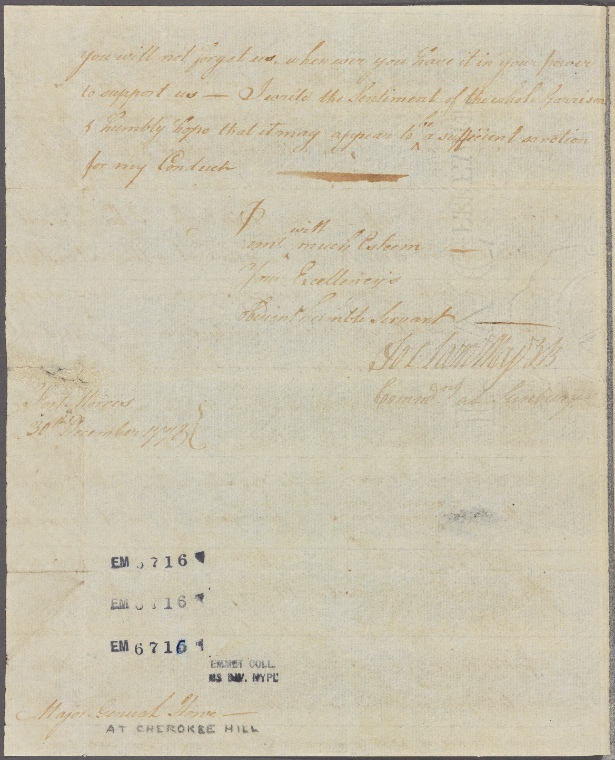 you will not forget us, whenever you have it in your power
to support us — I write the Sentiment of the whole Garrison
& humbly hope that it may appear to be a sufficient sanction
for my Conduct
I
am with much Esteem —
Your Excellency's
Obedient humble Servant
Jos. Lane Maj
Command at Sunbury
Fort Morris
30th December 1778
EM 6716
EM 6716
EM 6716
EMMET COLL.
MS DIV. NYPL
Major General Howe —
AT CHEROKEE HILL